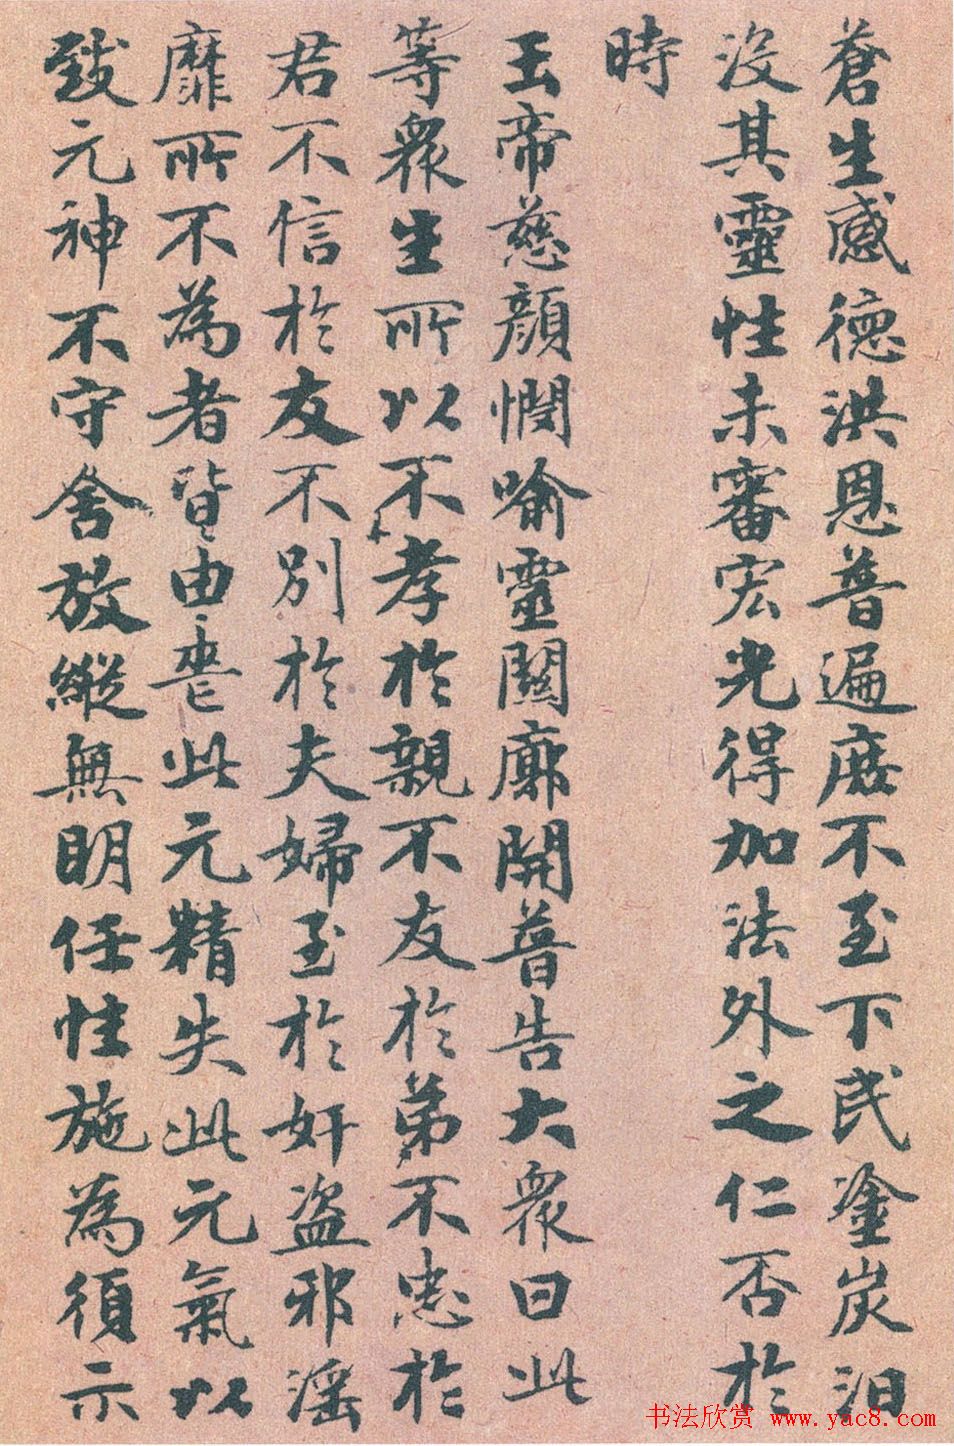 蒼生感德洪恩普遍庶不至下民塗炭汨
沒其靈性未審宏光得加法外之仁否於
時
玉帝慈顏憫喻靈關廓開普告大衆曰此
等衆生所以不孝於親不友於弟不忠於
君不信於友不別於夫婦至於奸盜邪淫
靡所不為者皆由喪此元精失此元氣以
致元神不守舍放縱無明任性施為須示
书法欣赏 www.yac8.com